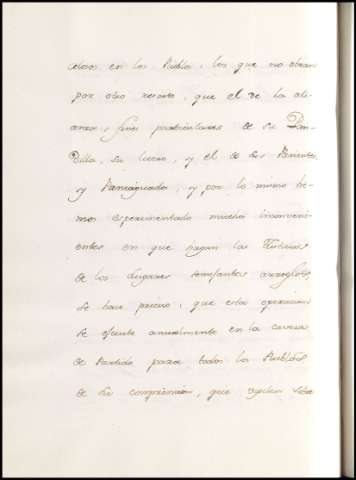 celos en los Pueblos, los que no obran
por otro resorte, que el de la ali-
anza y fines particulares de su Pan-
dilla, su lucro, y el de sus Parientes,
y Paniaguados, y por lo mismo he-
mos experimentado muchos inconveni-
entes en que hagan las Justicias
de los Lugares semejantes arreglos,
se hace preciso, que esta operacion
se efectue anualmente en la Cavera
de Partido para todos los Pueblos
de su comprension, que